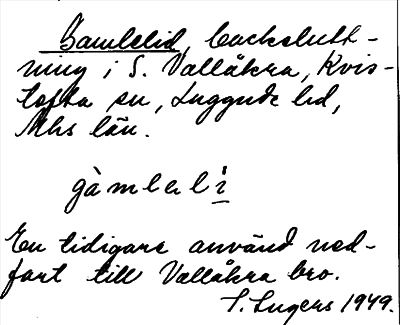 Gamleled, backslutt-
ning i S. Vallåkra, Kvis-
tofta sn, Luggude hd,
Mhs län.
gàmlelí
En tidigare använd ned-
fart till Vallåkra bro.
S. Ingers 1949.